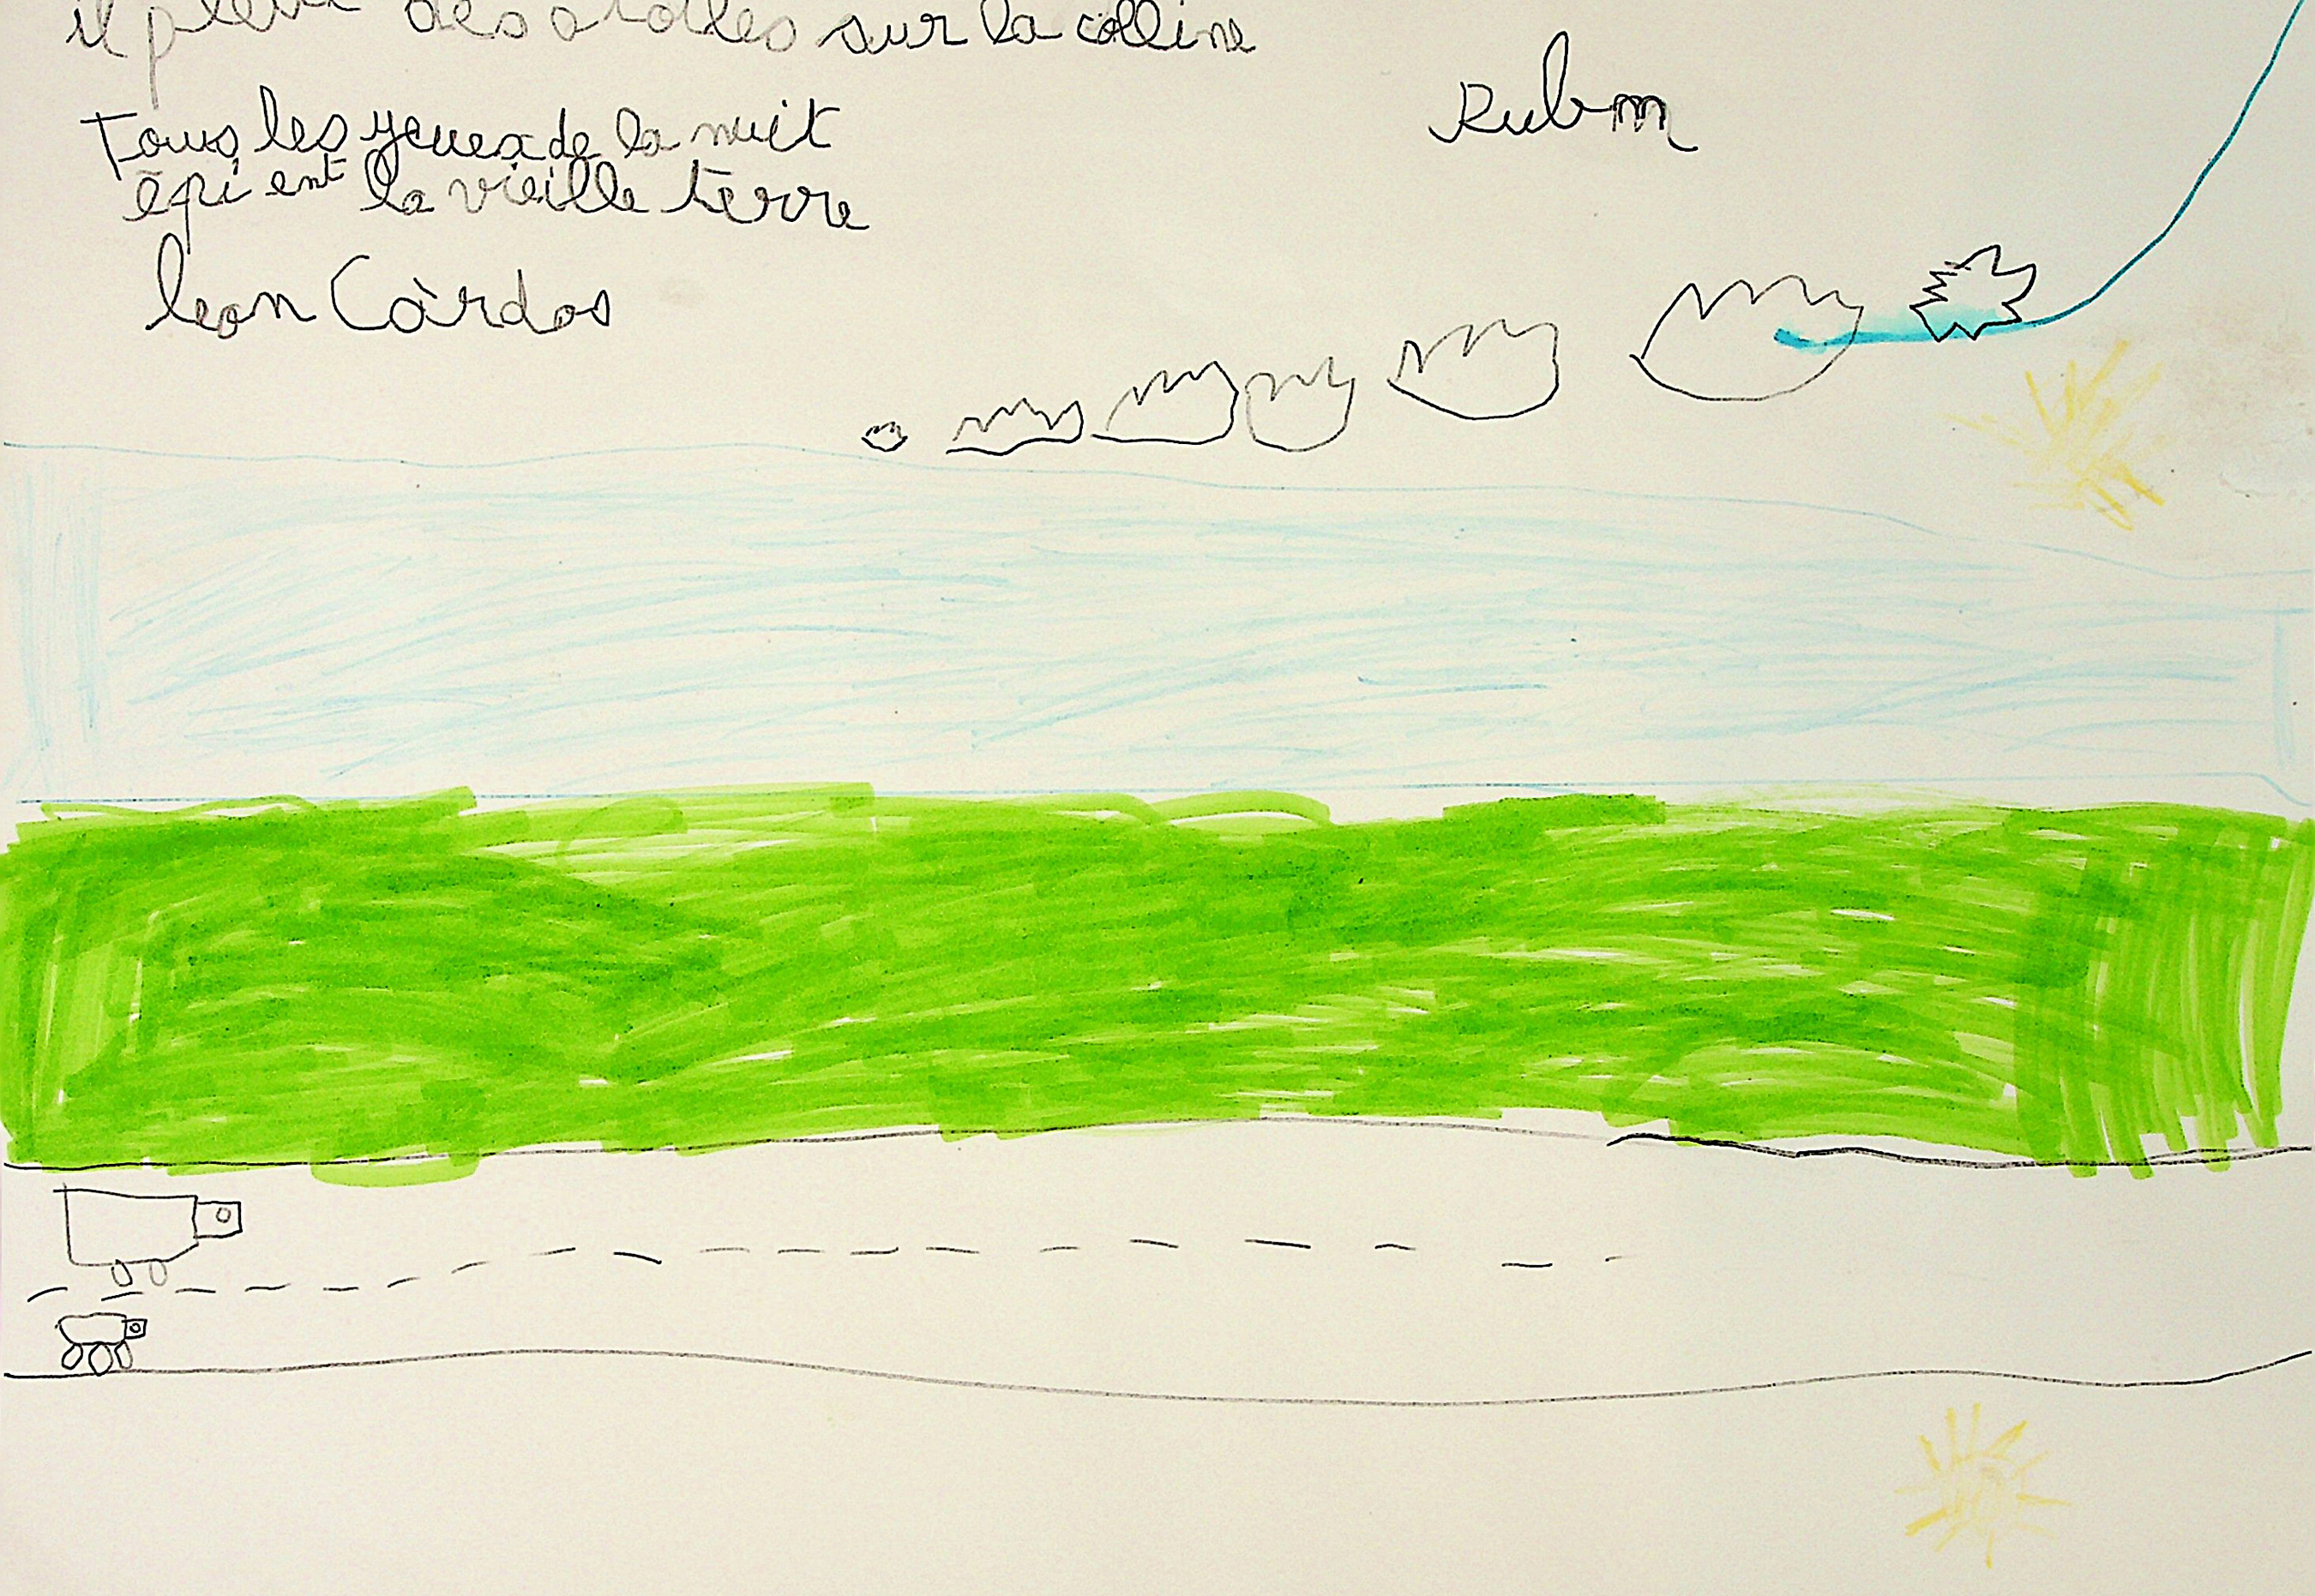 il pleut des étoiles sur la colline
Tous les yeuex de la nuit
épient la vieille terre
leon Càrdos
Rubm